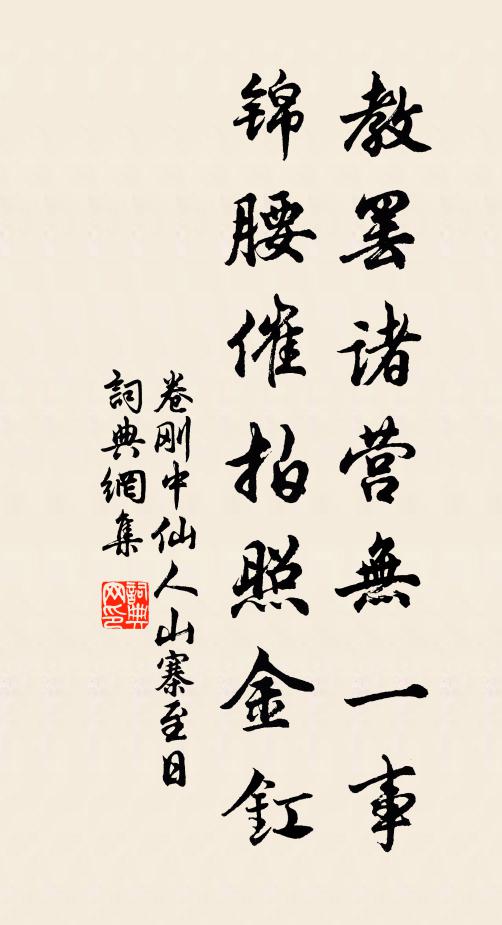 教罢诸营無一事
锦腰催拍照金釭
卷刚中仙人山寨至日
詞典網集
詞典网印